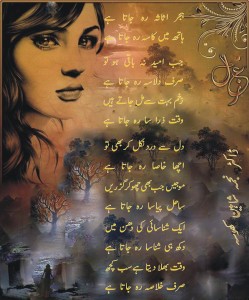 ہجر اثاثہ رہ جاتا ہے
ہاتھ میں کاسہ رہ جاتا ہے
جب امید نہ باقی ہو تو
صرف دلاسہ رہ جاتا ہے
زخم بہت سے مل جاتے ہیں
وقت ذرا سا رہ جاتا ہے
دل سے درد نکل کر بھی تو
اچھا خاصا رہ جاتا ہے
موجیں جب بھی چھو کر گزریں
ساحل پیاسا رہ جاتا ہے
ایک شناسائی کی دھن میں
دکھ ہی شناسا رہ جاتا ہے
وقت بھلا دیتا ہے سب کچھ
صرف خلاصہ رہ جاتا ہے
ڈاکٹر نجمہ شاہین کھوسہ